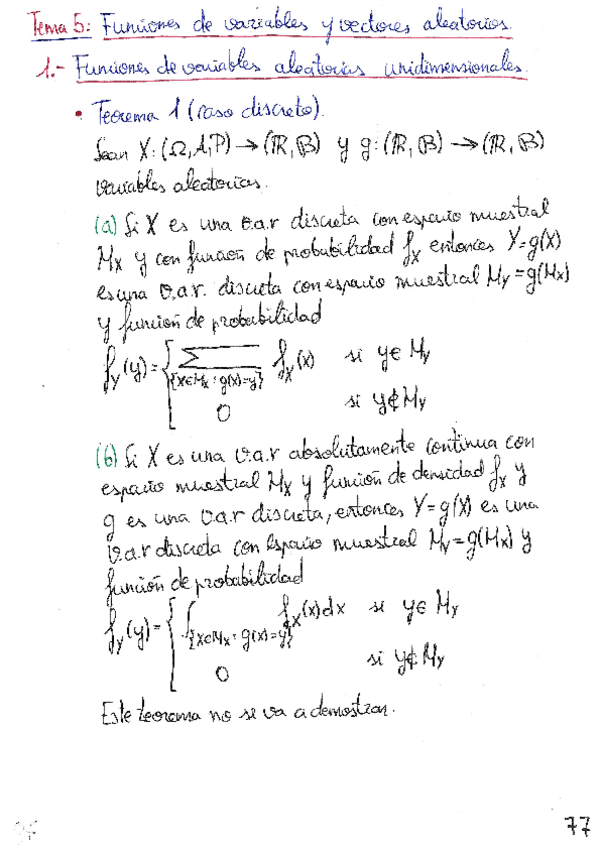 Tema 5: Funciones de variables y vectores aleatorios.
1.- Funciones de variables aleatorias unidimensionales.
• Teorema 1 (caso discreto).
Sean X: (Ω, A, P) → (ℝ, 𝔹) y g: (ℝ, 𝔹) → (ℝ, 𝔹)
variables aleatorias.
(a) Si X es una v.a.r discreta con espacio muestral
Mx y con función de probabilidad fx entonces Y=g(X)
es una v.a.r. discreta con espacio muestral My = g(Mx)
y función de probabilidad
fy(y) = { ∑{x∈Mx : g(x)=y} fx(x) si y∈ My
0 si y∉My
(b) Si X es una v.a.r absolutamente continua con
espacio muestral Mx y función de densidad fx y
g es una v.a.r discreta, entonces Y=g(X) es una
v.a.r discreta con espacio muestral My=g(Mx) y
función de probabilidad
fy(y) = { ∫{x∈Mx : g(x)=y} fx(x)dx si y∈ My
0 si y∉My
Este teorema no se va a demostrar.
77